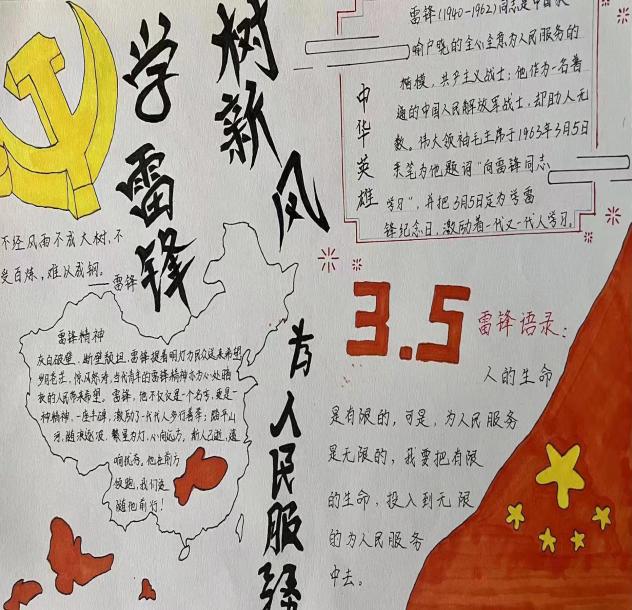 学雷锋
树新风
为人民服务
不经风雨不成大树,不
受百炼,难以成钢。
——雷锋
雷锋精神
灰白破壁,断壁颓垣,雷锋提着明灯为民众送来希望
的人民带来希望。雷锋,他不仅仅是一个名字,更是一
种精神,一座丰碑,激励了一代代人步行善举;踏平山
河,踏浪逐波,繁星为灯,心向远方,斯人已逝,遗
响犹存,他在前方
领跑,我们追
随他前行!
中华英雄
雷锋(1940-1962)同志是中国家
喻户晓的全心全意为人民服务的
楷模,共产主义战士;他作为一名普
通的中国人民解放军战士,却助人无
数。伟大领袖毛主席于1963年3月5日
亲笔为他题词“向雷锋同志
学习”,并把3月5日定为学雷
锋纪念日,激励着一代又一代人学习。
3.5
雷锋语录:
人的生命
是有限的,可是,为人民服务
是无限的,我要把有限
的生命,投入到无限
的为人民服务
中去。